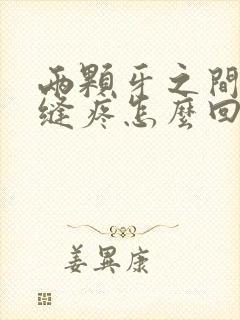 兩顆牙之間
縫疼怎麼回
姜異康